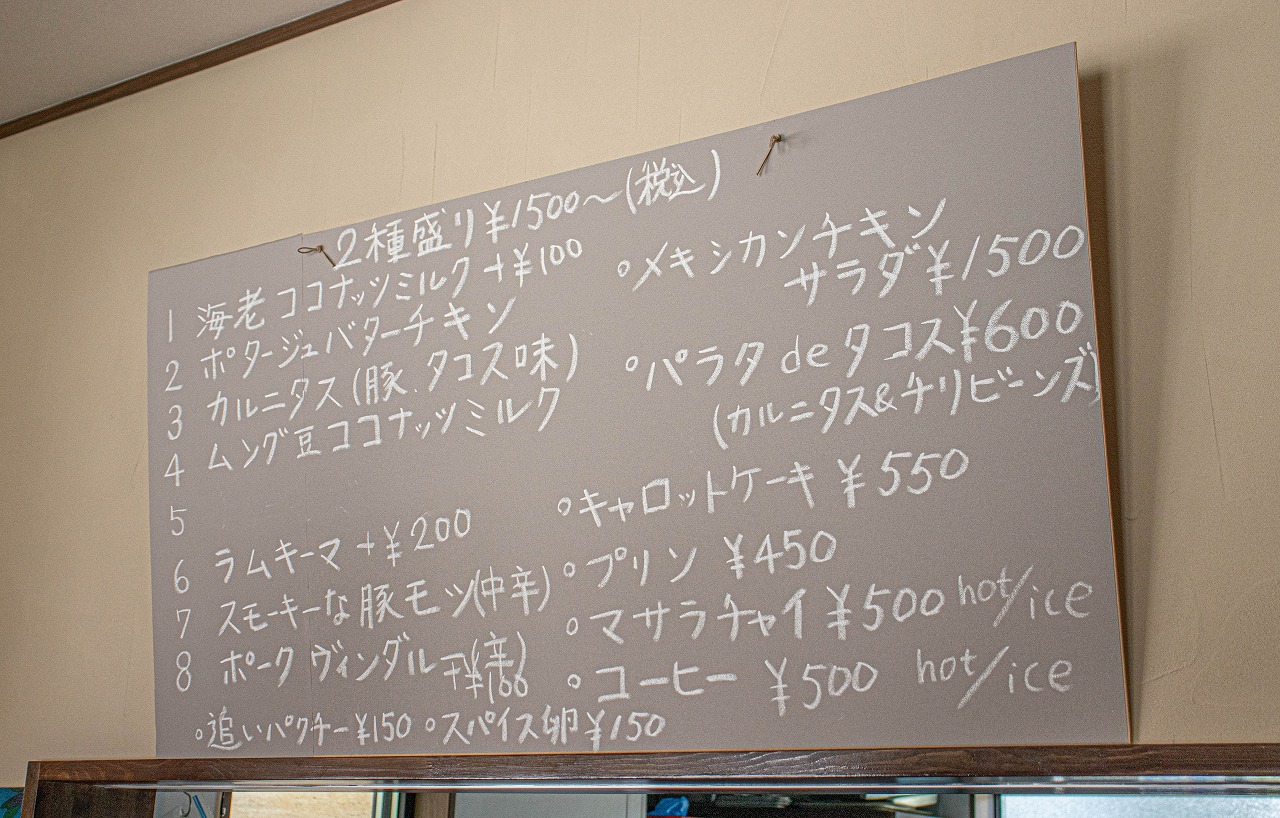 2種盛り¥1500〜(税込)
1 海老ココナッツミルク+¥100
2 ポタージュバターチキン
3 カルニタス(豚、タコス味)
4 ムング豆ココナッツミルク
5
6 ラムキーマ+¥200
7 スモーキーな豚モツ(中辛)
8 ポークヴィンダルー(辛)
+¥100
。追いパクチー¥150 。スパイス卵¥150
。メキシカンチキン
サラダ¥1500
。パラタdeタコス¥600
(カルニタス&チリビーンズ)
。キャロットケーキ ¥550
。プリン ¥450
。マサラチャイ ¥500 hot/ice
。コーヒー ¥500 hot/ice